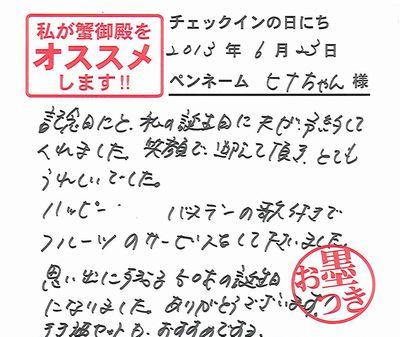 私が蟹御殿を
オススメ
します!!
チェックインの日にち
2013年6月23日
ペンネーム ヒナちゃん 様
記念日にと、私の誕生日に夫が予約して
くれました。笑顔で迎えて頂き、とても
うれしいでした。
ハッピー バースデーの歌付きで
フルーツのサービスもして下さいました。
思い出に残る 50才の誕生日
になりました。ありがとうございます!
セットも、おすすめですよ
お墨つき